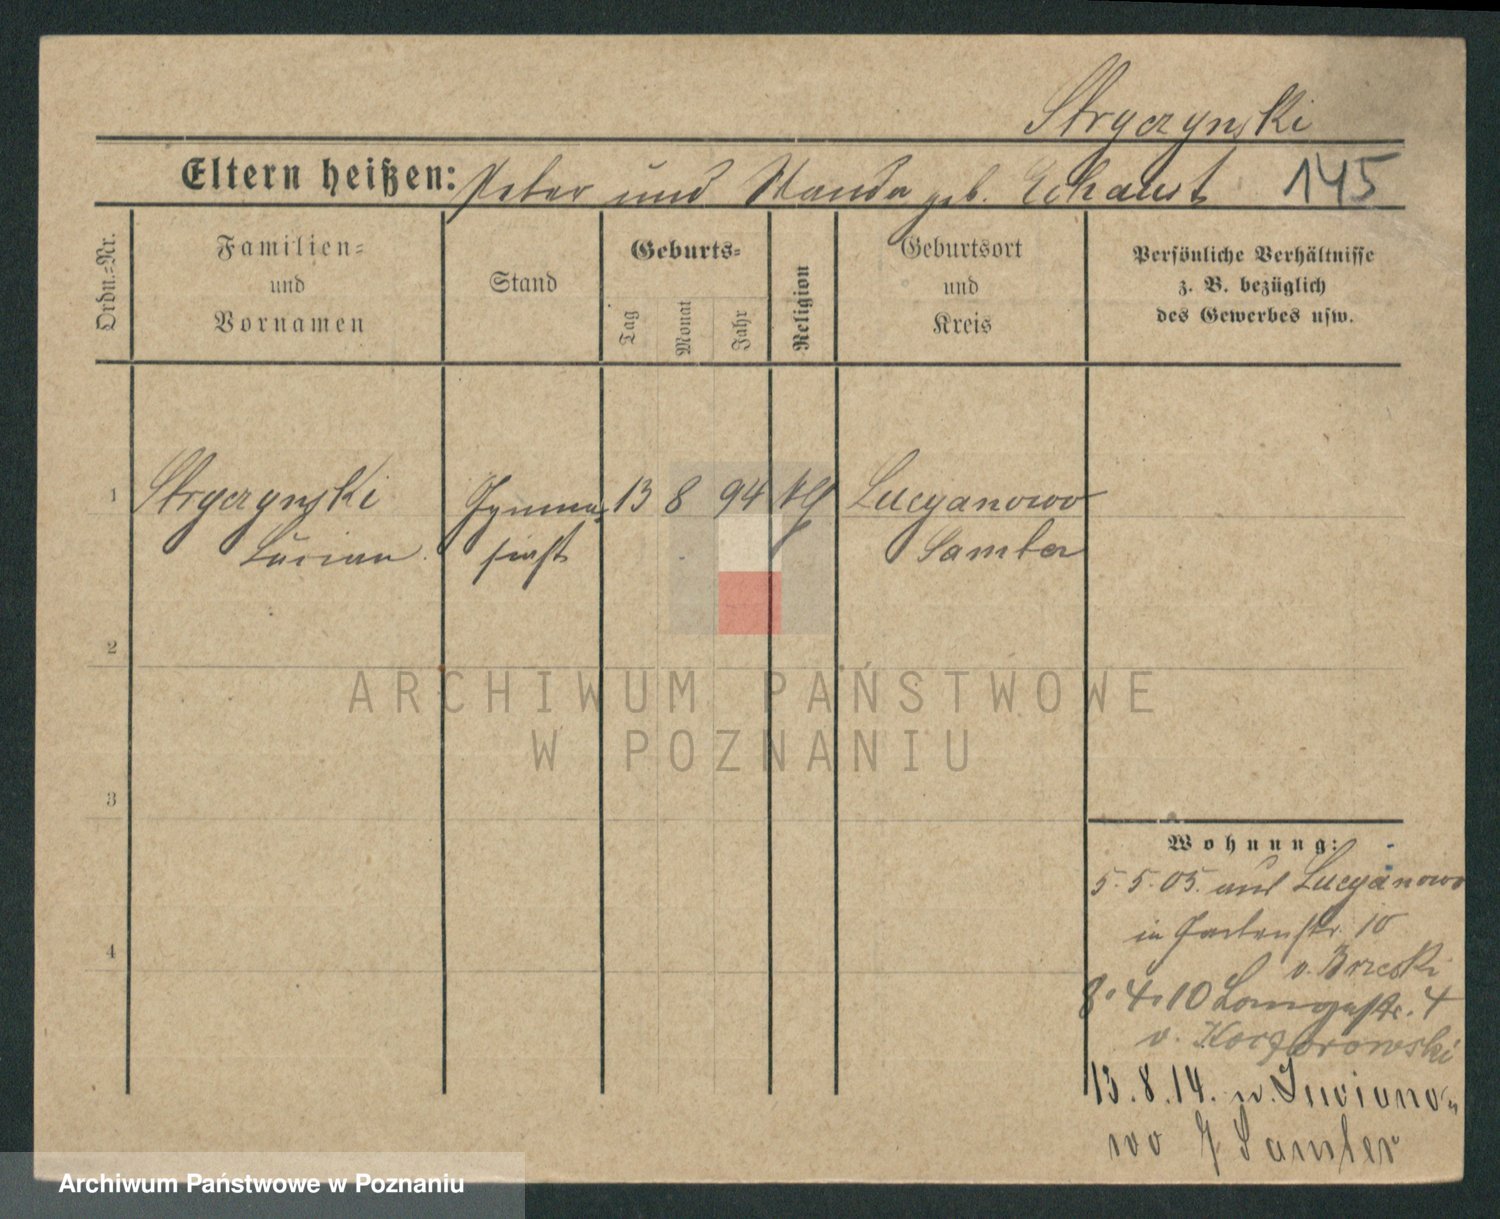 Stryczynski
Eltern heißen: Peter und Wanda geb. Echaust 145
Ordn.-Nr.
Familien-
und
Vornamen
Stand
Geburts-
Tag
Monat
Jahr
Religion
Geburtsort
und
Kreis
Persönliche Verhältnisse
z. B. bezüglich
des Gewerbes usw.
1 Stryczynski Gymna- 13 8 94 kq Lucyanowo
Lucian siast Samter
2
3
4
ARCHIWUM PAŃSTWOWE
W POZNANIU
Wohnung:
5.5.05. aus Lucyanowo
in Gartenstr. 10
v. Brzeski
8.4.10 Langestr. 4
v. Koczorowski
13.8.14. n. Luciano-
wo Samter
Archiwum Państwowe w Poznaniu